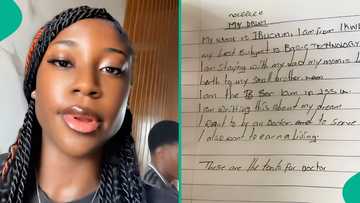 MY DREAM
My name is Ibukun. I am from IKWO
my best subject is Basic Technology
I am staying with my dad my mom is
both to my small brother
I am the
I am writing this about my dream
I want to by an Doctor and to serve
I also want to earn a living.
These are the tools for doctor